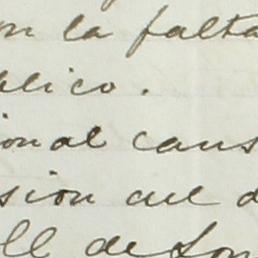 on la falta
blico.
ional caus
sion cul d
ll de Son